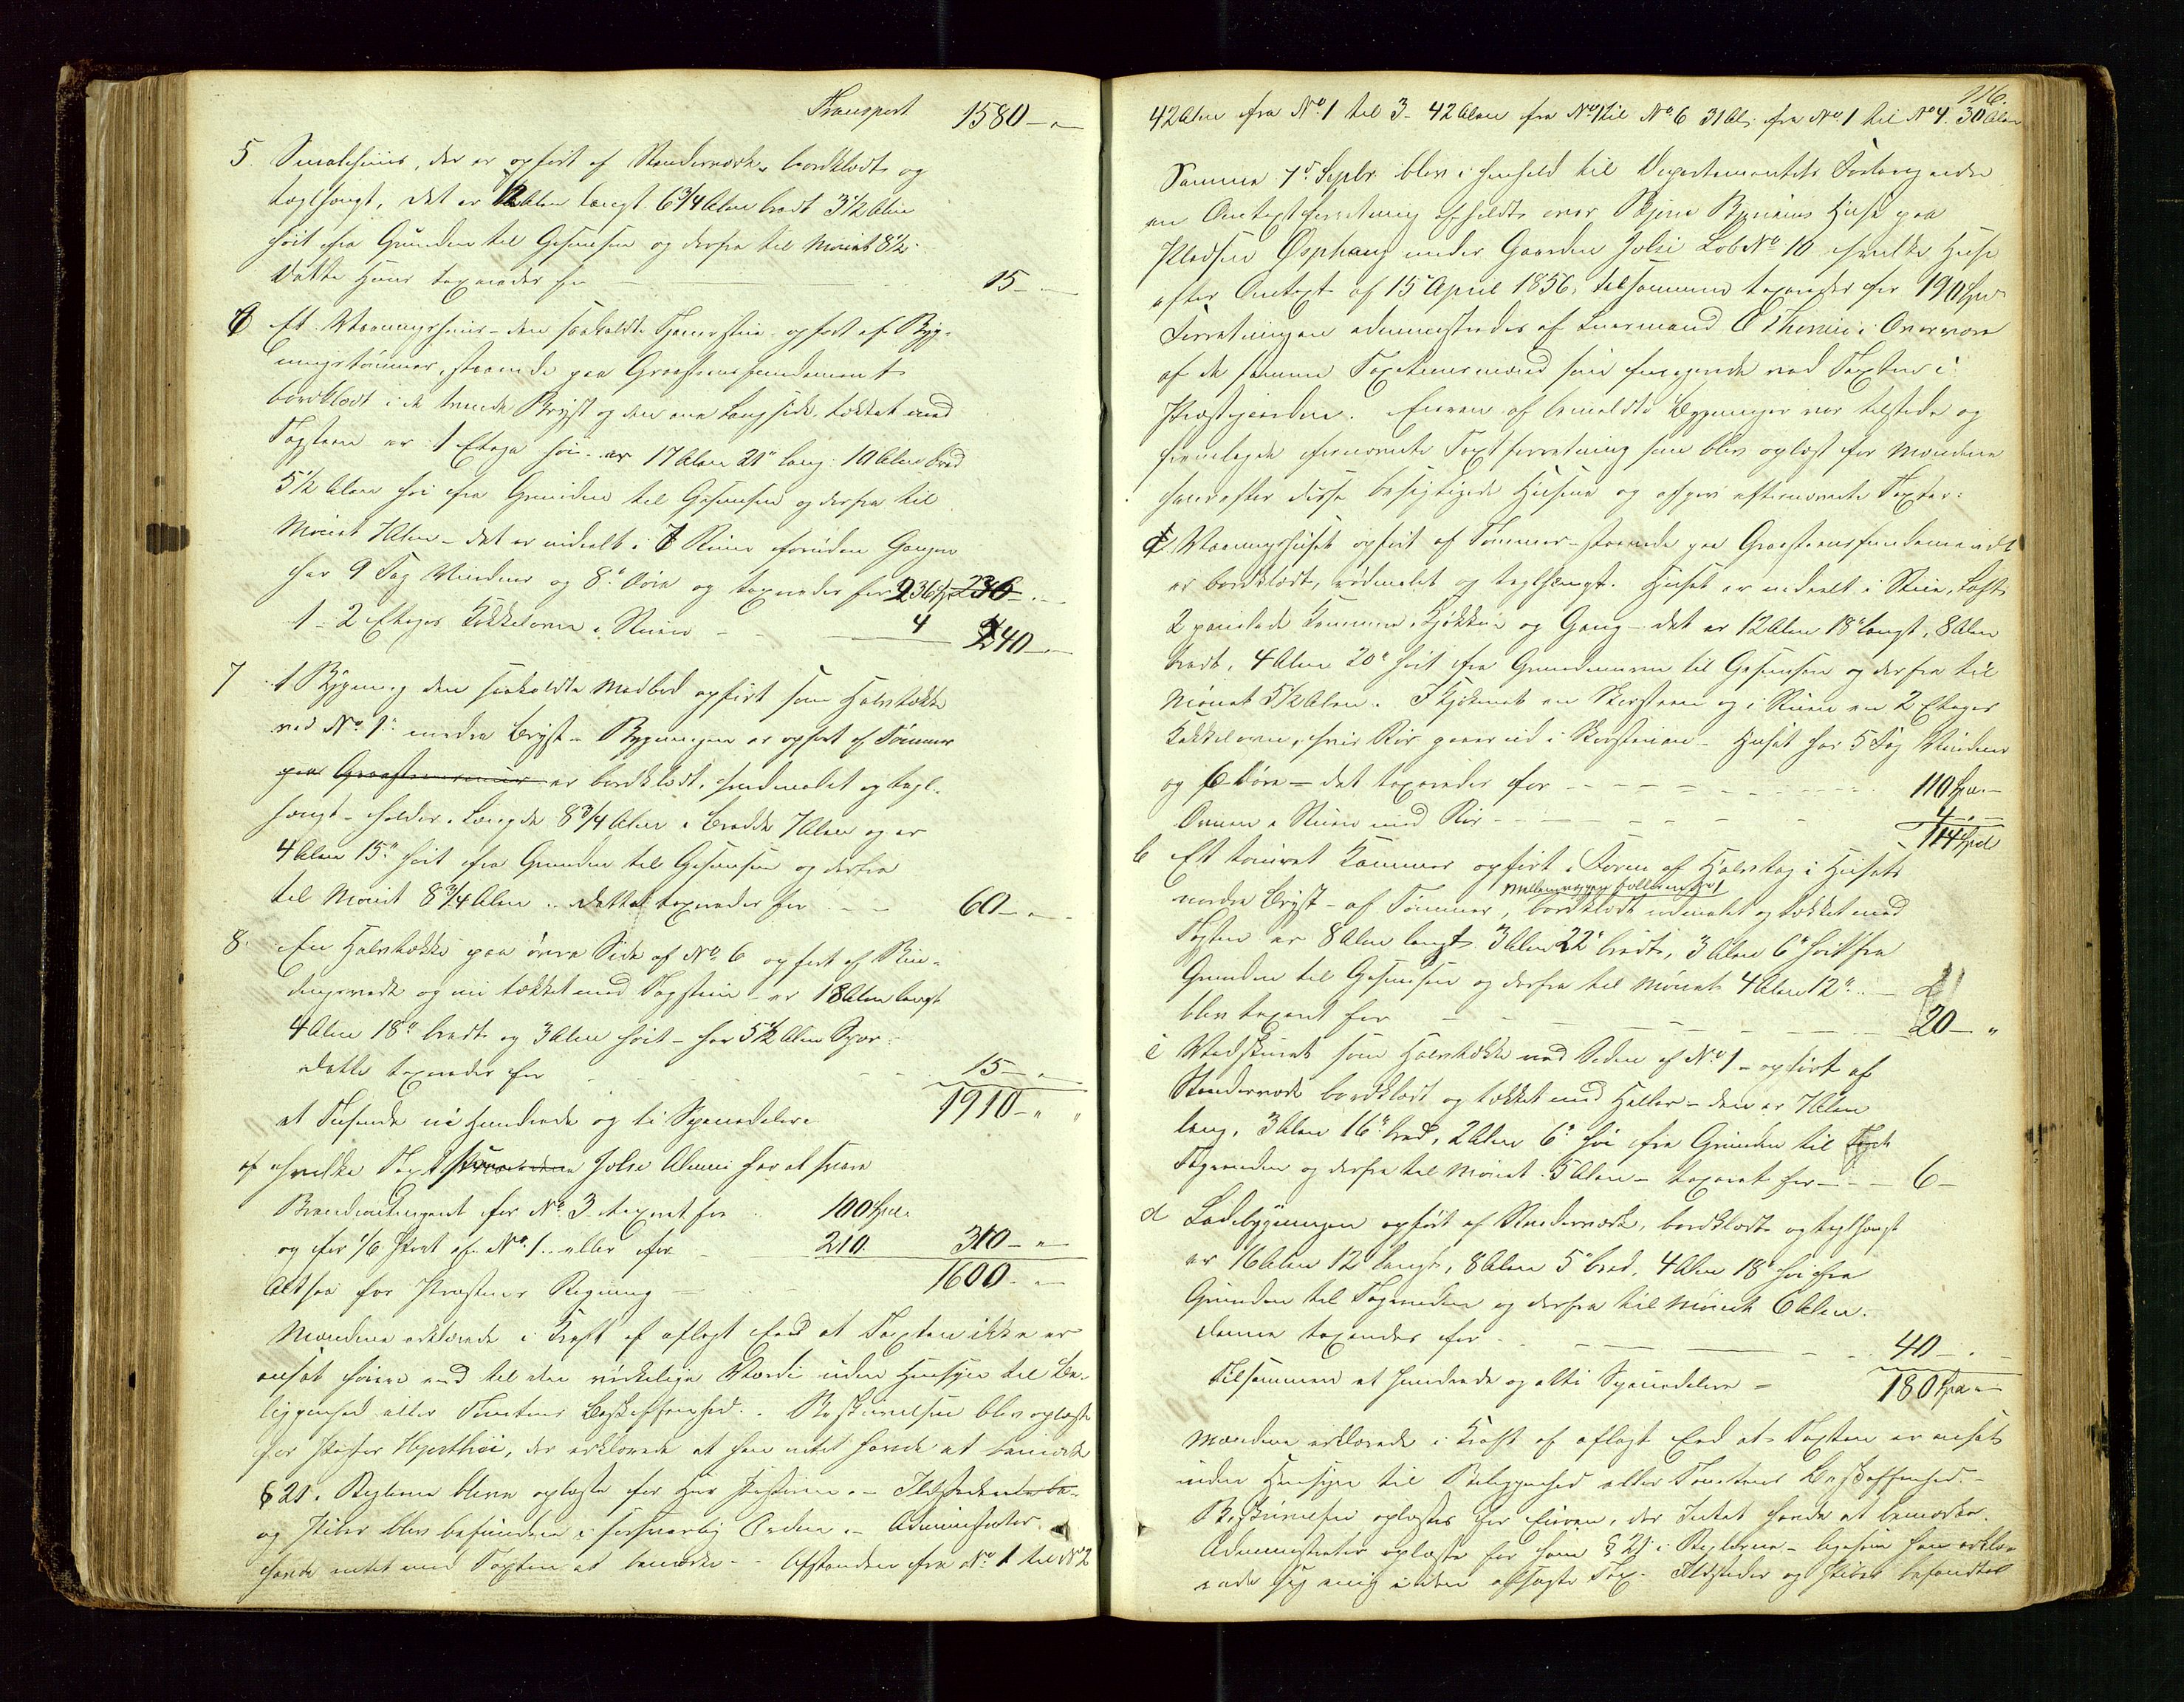 Transport 1580 — "
5. Smalehuus, der er opført af Stenderværk, bordklædt og
teglhængt, det er Alen langt 6 3/4 Alen bredt 3 1/2 Alen
høit fra Grunden til Gesimsen og derfra til Mønet 8 1/2
Dette Huus taxeredes for — 15 — "
6 Et Vaaningshuus – den saakaldte opført af Byg-
ningstømmer, staaende paa Graasteensfundament
bordklædt i de tvende Bryst og den ene Langside tækket med
Tagsteen er 1 Etage høi – er 17 Alen 21" lang 10 Alen bred
5 1/2 Alen høi fra Grunden til Gesimsen og derfra til
Mønet 7 Alen – det er inddelt i 7 Rum foruden Gangen
har 9 Fag Vinduer og 8 Døre og taxeredes for 236
1 – 2 Etages Kakkelovn i Stuen — 4 240 — "
7 1 Bygning den saakaldte Madbod opført som Halvtække
ved No 1 nordre Bryst – Bygningen er opført af Tømmer
paa Graasteensmuur er bordklædt, hvidmalet og tegl-
hængt – holder i Længde 8 3/4 Alen i Bredde 7 Alen og er
4 Alen 15" høit fra Grunden til Gesimsen og derfra
til Mønet 8 3/4 Alen .. Dette taxeredes for — 60 — "
8. En Halvtække paa øvre Side af No 6 opført af Bin-
dingsværk og nu tækket med Tagsteen – er 18 Alen langt
4 Alen 18" bredt og 3 Alen høit – har 5 1/2 Alen Spær.
Dette taxeredes for — 15 — "
et Tusende ni Hundrede og ti Speciedaler 1910 — " "
af hvilke Taxt Jolse Almue har at svare
Brandcontingent for No 3 taxeret for 100 Spd.
og for 1/6 Part af No 1 .. eller for — 210 310 — "
Altsaa for Præstens Regning — 1600 — "
Mændene erklærede i Kraft af aflagt Eed at Taxten ikke er
ansat høiere end til den virkelige Værdi uden Hensyn til Be-
liggenhed eller Tomtens Beskaffenhed. Beskrivelsen blev oplæst
for Pastor Hjorthøi, der erklærede at han intet havde at bemærke
§ 21 i Reglerne bleve oplæste for Hr Pastoren. – Ildstederne be-
og Piber blev befundne i forsvarlig Orden. – Administrator
havde intet med Taxten at bemærke. – Afstanden fra No 1 til No 2
116.
42 Alen fra No 1 til 3 – 42 Alen fra No 1 til No 6 31 Al. fra No 1 til No 4. 30 Alen
Samme 7d Septbr. blev i Henhold til Departementets Forlangende
en Omtaxtforretning afholdt over Huse paa
Pladsen Øsphaug under Gaarden Jolse Løb No 10 hvilke Huse
efter Omtaxt af 15 April 1856, tilsammen taxeredes for 190 Spd.
Forretningen administredes af Lensmand O Thorsen i Overvær
af de samme Taxationsmænd som fungerede ved Taxten i
Præstegaarden. Eieren af bemeldte Bygninger var tilstede og
fremlagde fornævnte Taxtforretning som blev oplæst for Mændene
hvorefter disse besigtigede Husene og afgav efternævnte Taxter:
a, Vaaningshuset opført af Tømmer – staaende paa Graasteensfundamendt
er bordklædt, rødmalet og teglhængt. Huset er inddelt i Stue, Loft
2 panelede Kammere, Kjøkken og Gang – det er 12 Alen 18" langt, 8 Alen
bredt, 4 Alen 20" høit fra Grundmuren til Gesimsen og derfra til
Mønet 5 1/2 Alen. I Kjøkkenet en Skorsteen og i Stuen en 2 Etages
Kakkelovn, hvis Rør gaaer ud i Skorstenen – Huset har 5 Fag Vinduer
og 6 Døre – det taxeredes for — 110 Spd. —
Ovnen i Stuen med Rør — 4 —
114 Spd
b Et tømret Kammer opført i Form af Halvtag i Husets
nordre Bryst – af Tømmer, bordklædt rødmalet og tækket med
Mellemvæggen fælles med No 1
Tagsten er 8 Alen langt 3 Alen 22" bredt, 3 Alen 6" høit fra
Grunden til Gesimsen og derfra til Mønet 4 Alen 12" —
blev taxeret for — 20 — "
c Vedskuret som Halvtække ved Siden af No 1 – opført af
Stenderværk bordklædt og tækket med Heller – den er 7 Alen
lang, 3 Alen 16" bred, 2 Alen 6" høi fra Grunden til
Tagranden og derfra til Mønet 5 Alen – taxeret for — 6 —
d Ladebygningen opført af Stenderværk, bordklædt og teglhængt
er 16 Alen 12" langt, 8 Alen 5" bred, 4 Alen 18" høi fra
Grunden til Tagranden og derfra til Mønet 6 Alen.
denne taxeredes for — 40 — " —
Tilsammen et Hundrede og otti Speciedaler — 180 Spd —
Mændene erklærede i Kraft af aflagt Eed at Taxten er ansat
uden Hensyn til Beliggenhed eller Tomtens Beskaffenhed. –
Beskrivelsen oplæstes for Eieren, der Intet havde at bemærke.
Administrator oplæste for ham § 21 i Reglerne – ligesom han erklæ-
rede sig enig i den afsagte Taxt. Ildsteder og Piber befandtes